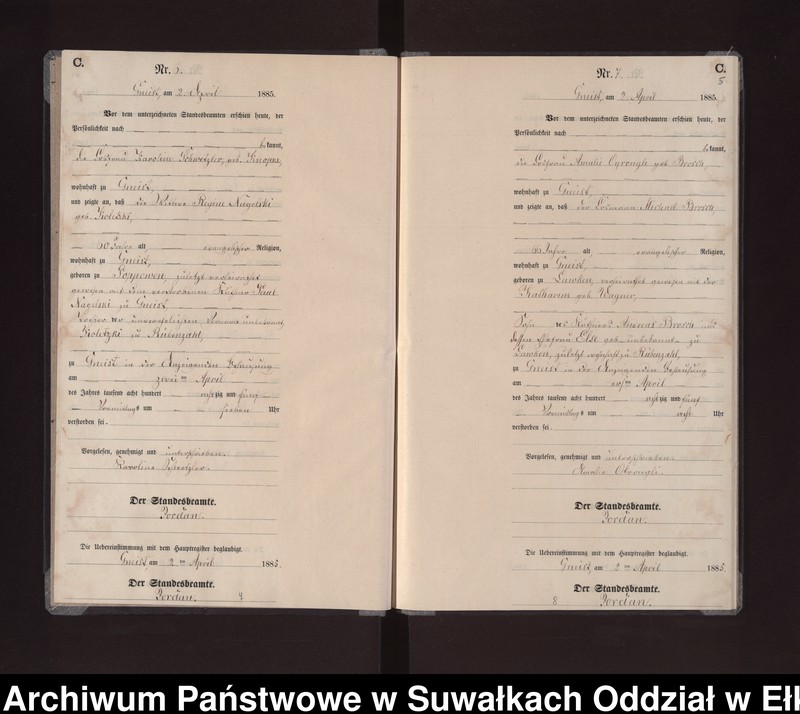 C.
Nr. 6.
Gneist, am 2. April 1885.
Vor dem unterzeichneten Standesbeamten erschien heute, der
Persönlichkeit nach
bekannt,
die Losfrau Karoline geb.
wohnhaft zu Gneist,
und zeigte an, daß die Regine Nagelski
geb. Koletzki,
60 Jahre alt, evangelischer Religion,
wohnhaft zu Gneist,
geboren zu zuletzt verheirathet
gewesen mit dem verstorbenen Paul
Nagelski zu Gneist,
Tochter der unverehelichten, Vorname unbekannt,
Koletzki zu Rübenzahl,
zu Gneist in der Anzeigenden Behausung
am zweiten April
des Jahres tausend acht hundert achtzig und fünf
Vormittags um sieben Uhr
verstorben sei.
Vorgelesen, genehmigt und unterschrieben.
Karoline
Der Standesbeamte.
Jordan.
Die Uebereinstimmung mit dem Hauptregister beglaubigt.
Gneist, am 2ten April 1885.
Der Standesbeamte.
Jordan.
C.
5
Nr. 7.
Gneist, am 2. April 1885.
Vor dem unterzeichneten Standesbeamten erschien heute, der
Persönlichkeit nach
bekannt,
die Losfrau Amalie geb. Brosch,
wohnhaft zu Gneist,
und zeigte an, daß der Losmann Michael Brosch
66 Jahre alt, evangelischer Religion,
wohnhaft zu Gneist,
geboren zu Lawken, verheirathet gewesen mit der
Katharina geb. Wagner,
Sohn des Käthners Andreas Brosch und
dessen Ehefrau Else geb. unbekannt zu
Lawken, zuletzt wohnhaft zu Rübenzahl,
zu Gneist in der Anzeigenden Behausung
am ersten April
des Jahres tausend acht hundert achtzig und fünf
Vormittags um acht Uhr
verstorben sei.
Vorgelesen, genehmigt und unterschrieben.
Amalie
Der Standesbeamte.
Jordan.
Die Uebereinstimmung mit dem Hauptregister beglaubigt.
Gneist, am 2ten April 1885.
Der Standesbeamte.
8 Jordan.
Archiwum Państwowe w Suwałkach Oddział w Ełk